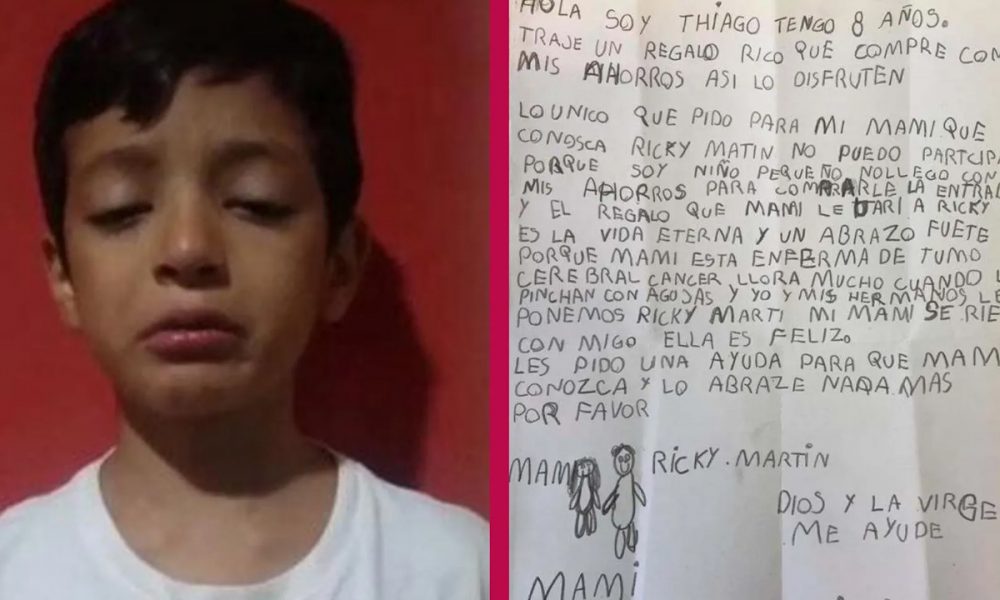 HOLA SOY THIAGO TENGO 8 AÑOS.
TRAJE UN REGALO RICO QUE COMPRE CON
MIS AHORROS ASI LO DISFRUTEN
LO UNICO QUE PIDO PARA MI MAMI QUE
CONOSCA RICKY MATIN NO PUEDO PARTCIPA
PORQUE SOY NIÑO PEQUEÑO NOLLEGO CON
MIS AHORROS PARA COMPRARLE LA ENTRA
Y EL REGALO QUE MAMI LE DARI A RICKY
ES LA VIDA ETERNA Y UN ABRAZO FUETE
PORQUE MAMI ESTA ENFERMA DE TUMO
CEREBRAL CANCER LLORA MUCHO CUANDO L
PINCHAN CON AGUJAS Y YO Y MIS HERMANOS LE
PONEMOS RICKY MARTI MI MAMI SE RIE
CON MIGO ELLA ES FELIZ.
LES PIDO UNA AYUDA PARA QUE MAM
CONOZCA Y LO ABRAZE NADA MAS
POR FAVOR
MAMI RICKY. MARTIN
DIOS Y LA VIRGE
ME AYUDE
MAMI